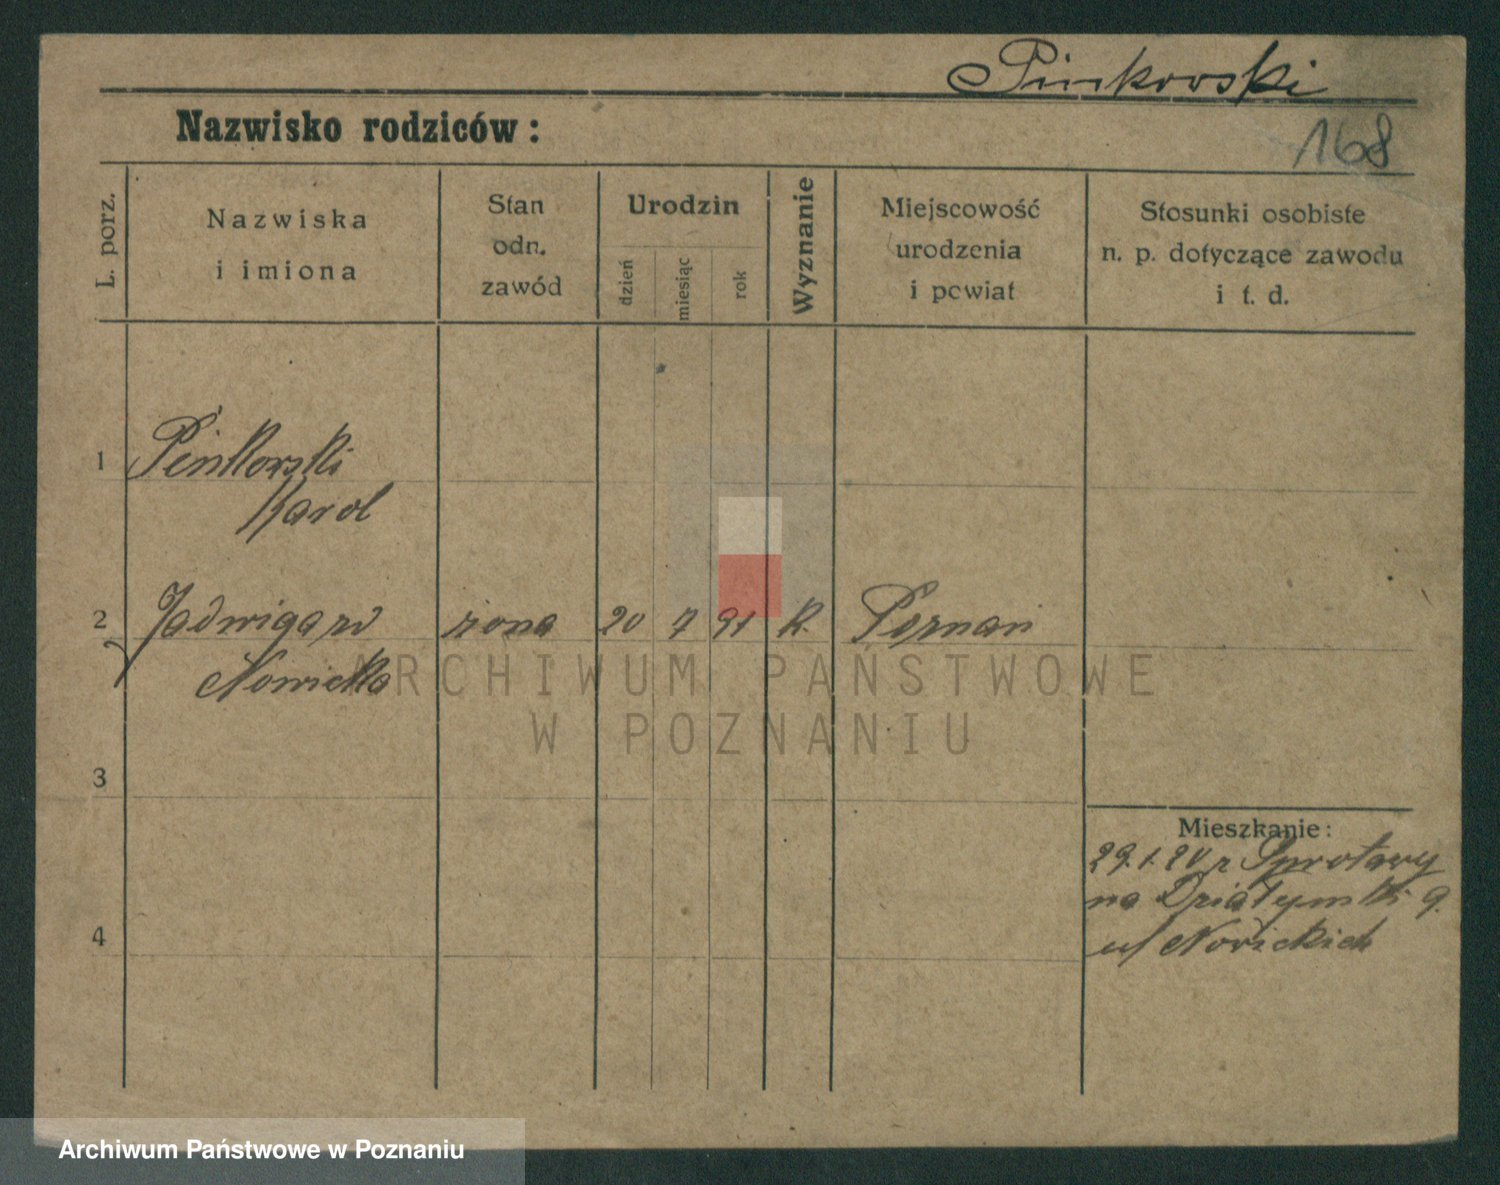 Pinkowski
Nazwisko rodziców:
168
L. porz.
Nazwiska
i imiona
Stan
odn.
zawód
Urodzin
dzień
miesiąc
rok
Wyznanie
Miejscowość
urodzenia
i powiat
Stosunki osobiste
n. p. dotyczące zawodu
i t. d.
1
Pinkowski
Karol
2
Jadwiga zd żona 20 7 91 K. Poznań
Nowicka
ARCHIWUM PAŃSTWOWE
W POZNANIU
3
Mieszkanie:
29.1.20 z Szprotawy
na Działyński 9.
u/ Nowickich
4
Archiwum Państwowe w Poznaniu